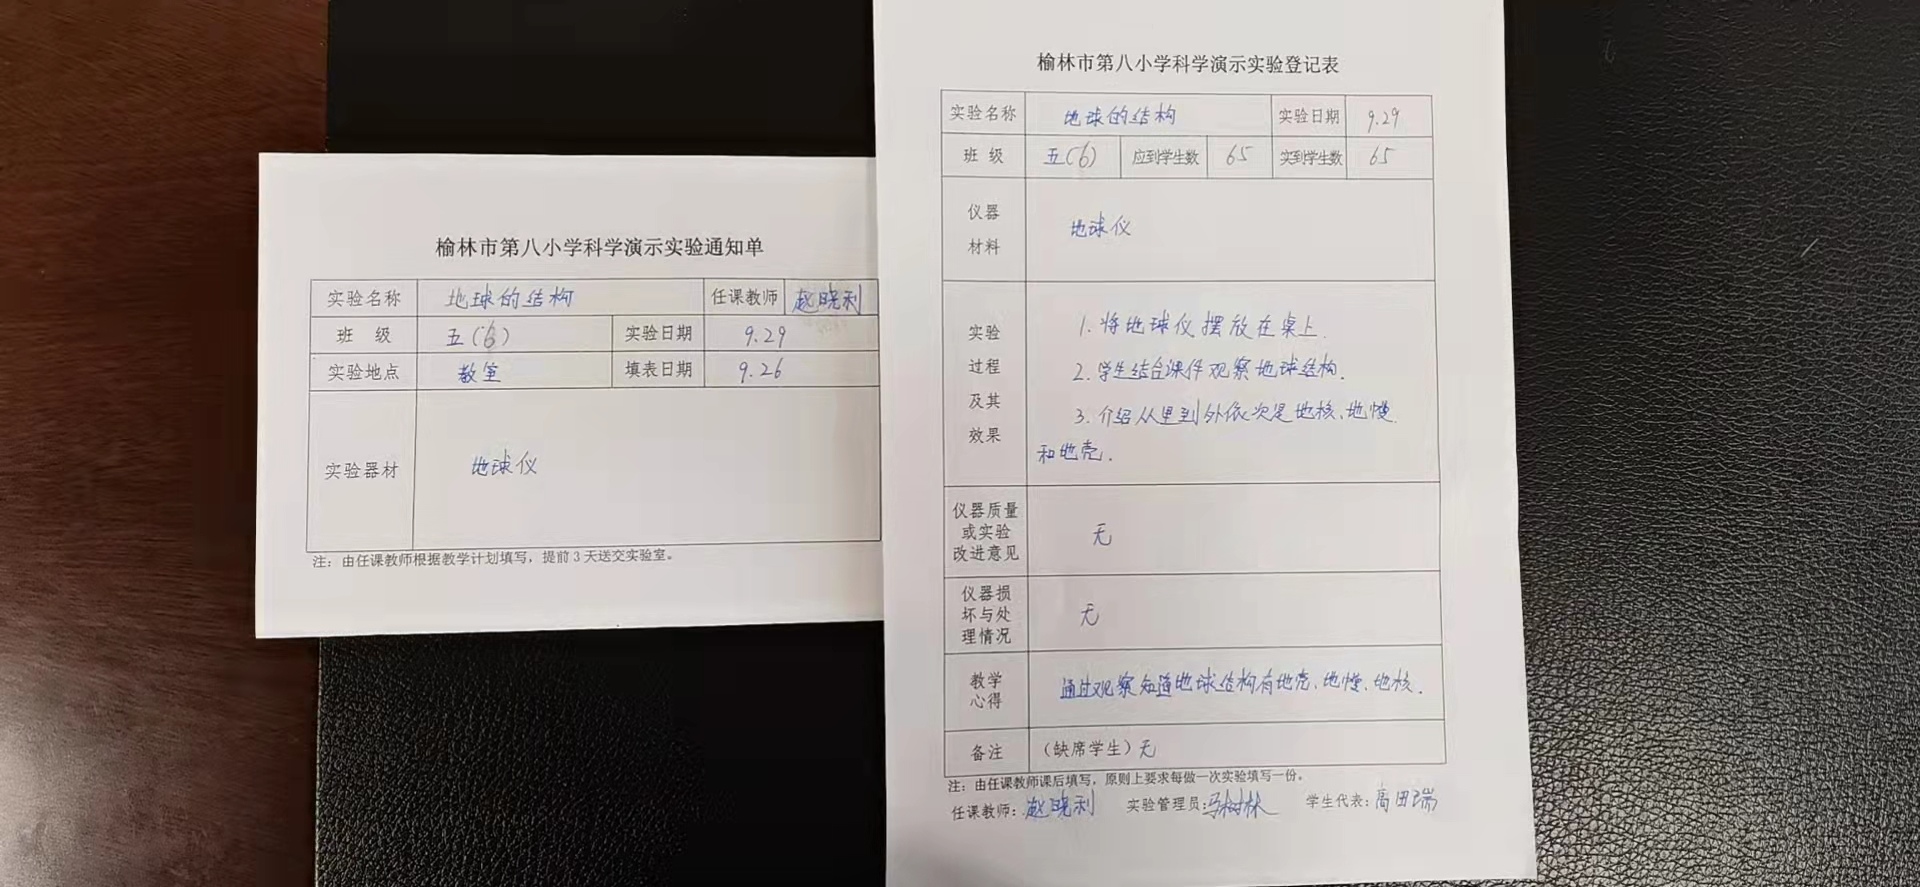 榆林市第八小学科学演示实验通知单
实验名称 地球的结构 任课教师 赵晓利
班 级 五(6) 实验日期 9.29
实验地点 教室 填表日期 9.26
实验器材 地球仪
注：由任课教师根据教学计划填写，提前3天送交实验室。
榆林市第八小学科学演示实验登记表
实验名称 地球的结构 实验日期 9.29
班 级 五(6) 应到学生数 65 实到学生数 65
仪器
材料
地球仪
实验
过程
及其
效果
1.将地球仪摆放在桌上.
2.学生结合课件观察地球结构.
3.介绍从里到外依次是地核、地慢
和地壳.
仪器质量
或实验
改进意见
无
仪器损
坏与处
理情况
无
教学
心得
通过观察知道地球结构有地壳、地慢、地核.
备注 （缺席学生）无
注：由任课教师课后填写，原则上要求每做一次实验填写一份。
任课教师：赵晓利 实验管理员：马树林 学生代表：高田瑞